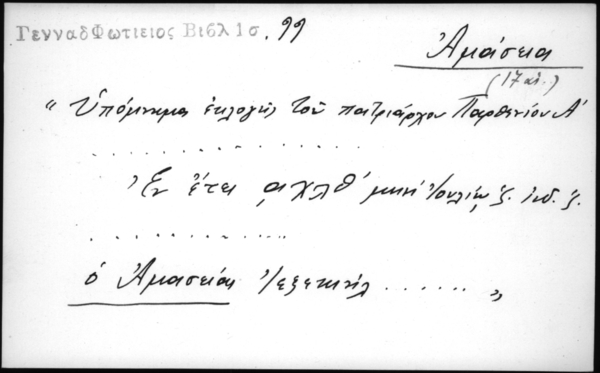 ΓενναδΦωτιειος Βιβλ 1σ. 99
Ἀμάσεια
(17 αἰ.)
“ Ὑπόμνημα ἐκλογῆς τοῦ πατριάρχου Παρθενίου Α'
. . . . . . . . . . . . . .
Ἐν ἔτει ͵αχλθ' μηνὶ Ἰουλίῳ ζ. ἰνδ. ζ.
. . . . . . . . . . . . . .
ὁ Ἀμασείας Ἰεζεκιὴλ . . . . . . „